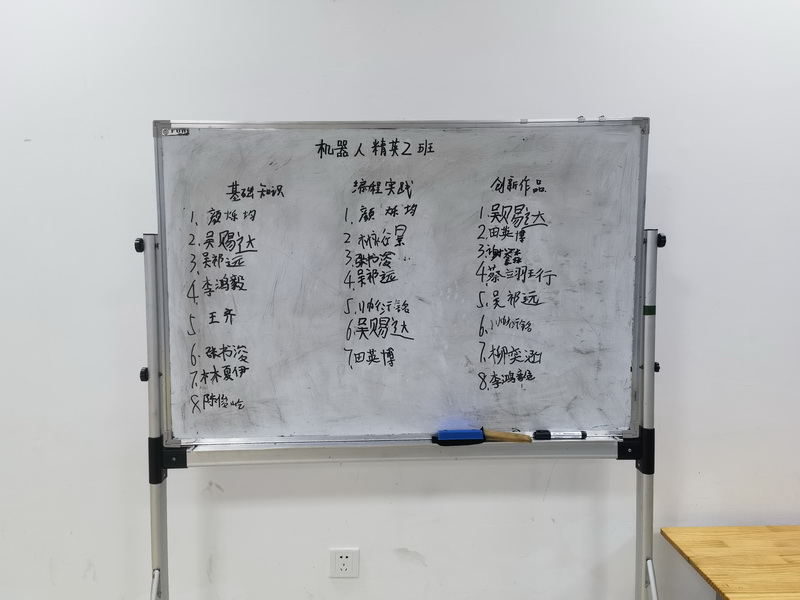 机器人精英2班
基础知识
1. 颜烁均
2. 吴赐达
3. 吴祁远
4. 李鸿毅
5 王齐
6. 张书浚
7. 林夏伊
8 陈俊屹
编程实践
1. 颜烁均
2
3. 张书浚
4. 吴祁远
5. 帅行铭
6. 吴赐达
7. 田英博
创新作品
1. 吴赐达
2. 田英博
3. 谢
4. 蔡翊行
5. 吴祁远
6. 帅行铭
7. 柳奕涵
8. 李鸿毅